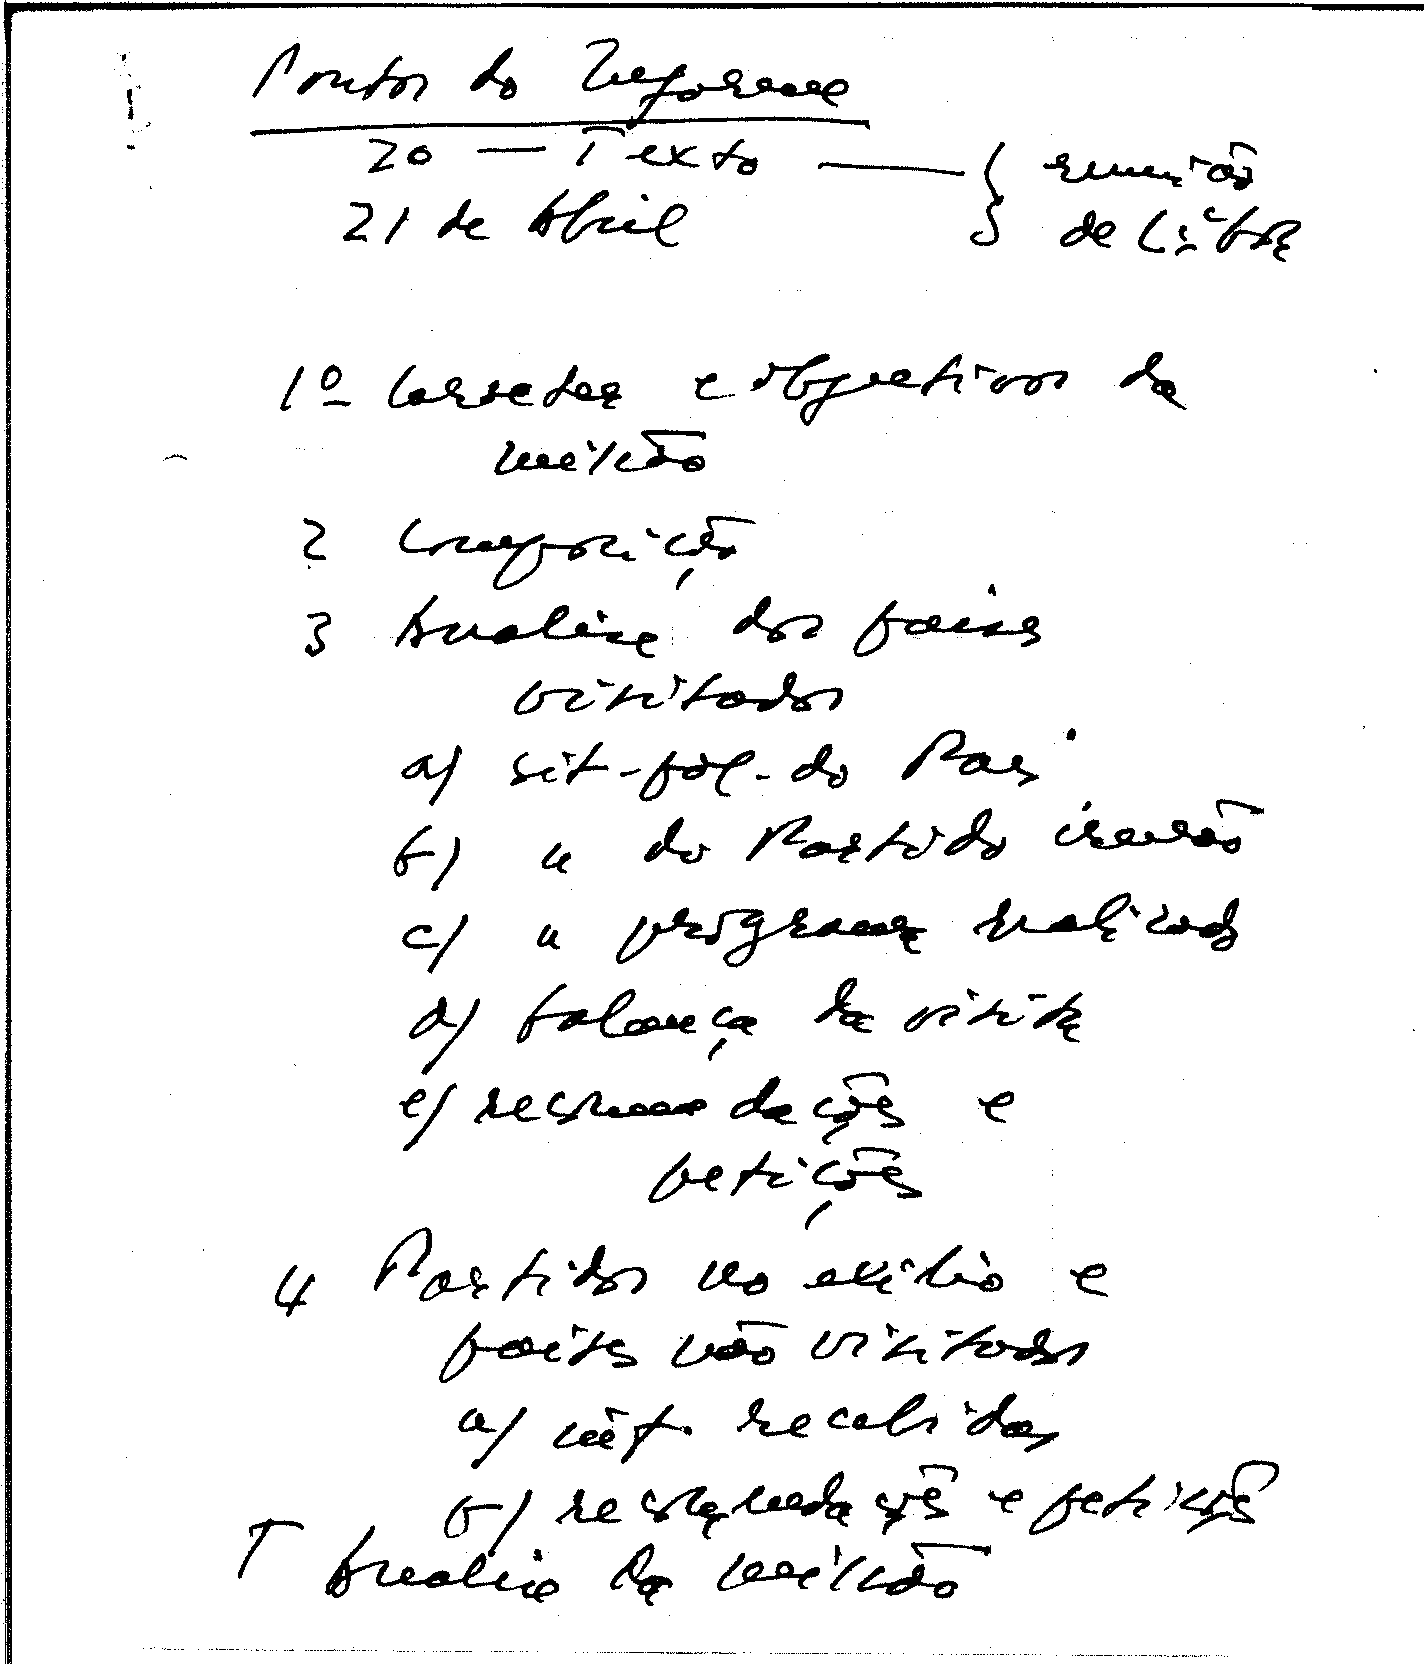 Pontos do Informe
20 — Texto — { reunião
21 de Abril de Líbia
1º Carater e objetivos da
missão
2 Composição
3 Analise dos paises
visitados
a) sit-pol-do Pais
b) " do Partido irmão
c) " programa realizado
d) balança da visita
e) recomendações e
petições
4 Partidos no exilio e
paises não visitados
a) inf. recebidas
b) recomendações e petições
5 Analise da missão